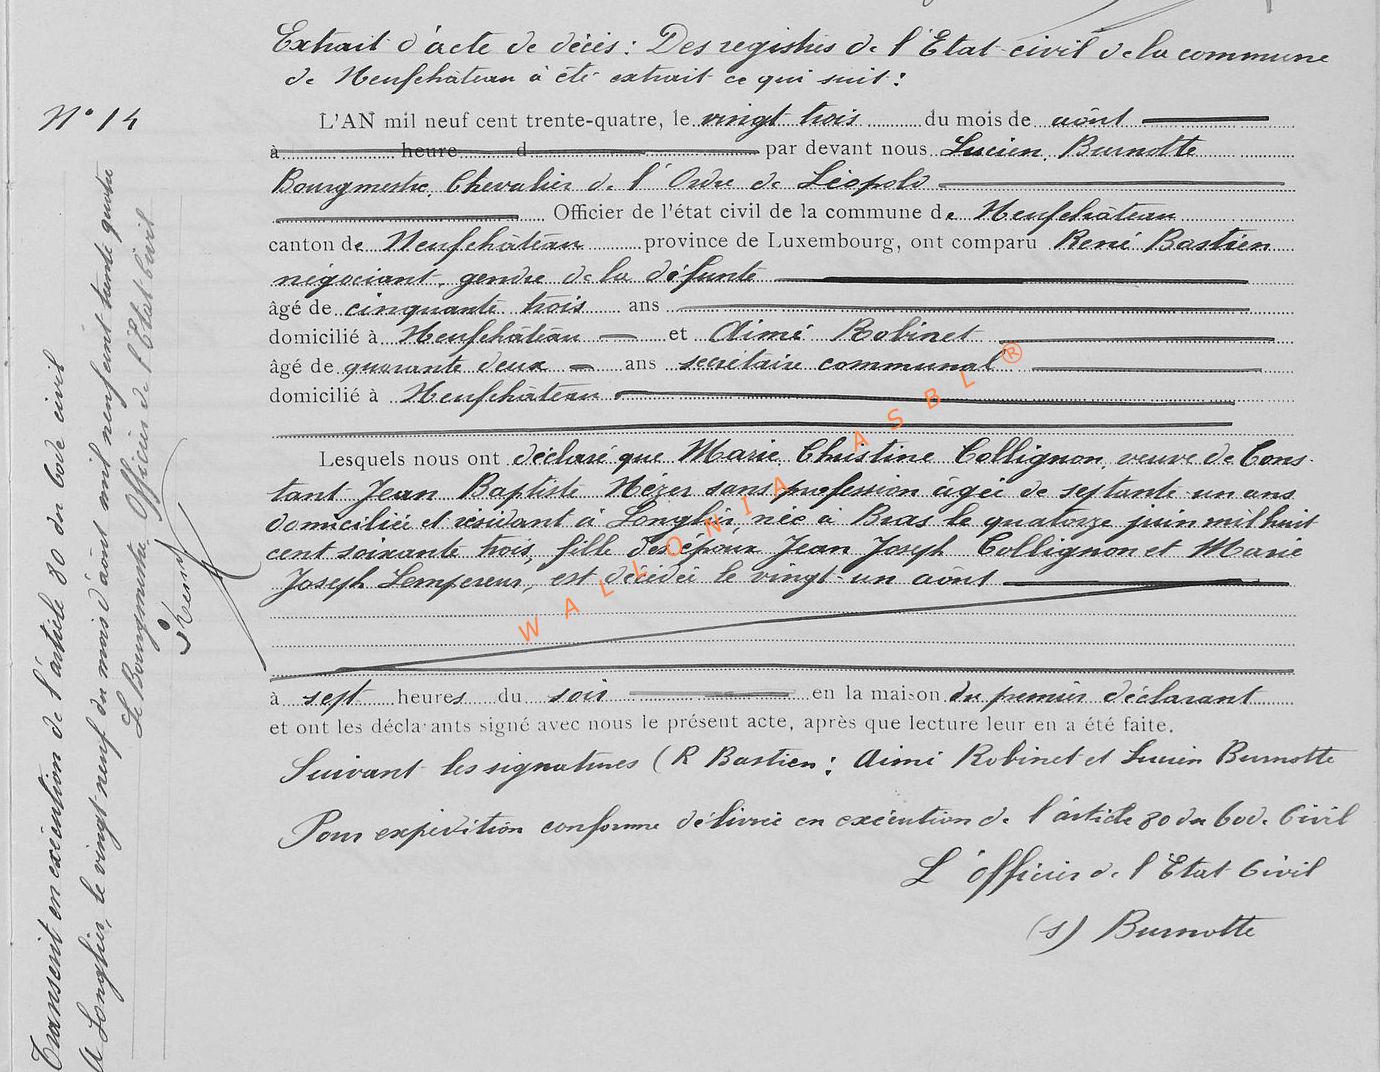 Extrait d'acte de décès : Des registres de l'Etat civil de la commune
de Neufchâteau a été extrait ce qui suit :
N° 14
L'AN mil neuf cent trente-quatre, le vingt trois du mois de août
à heure d par devant nous Lucien Burnotte
Bourgmestre, Chevalier de l'Ordre de Léopold
Officier de l'état civil de la commune de Neufchâteau
canton de Neufchâteau province de Luxembourg, ont comparu René Bastien
négociant, gendre de la défunte
âgé de cinquante trois ans
domicilié à Neufchâteau et Aimé Robinet
âgé de quarante deux ans secrétaire communal
domicilié à Neufchâteau
Lesquels nous ont déclaré que Marie Christine Collignon, veuve de Cons-
tant Jean Baptiste Nézer sans profession âgée de septante-un ans
domiciliée et résidant à Longlier, née à Bras le quatorze juin mil huit
cent soixante trois, fille des époux Jean Joseph Collignon et Marie
Joseph Lempereur, est décédée le vingt-un août
à sept heures du soir en la maison du premier déclarant
et ont les déclarants signé avec nous le présent acte, après que lecture leur en a été faite.
Suivant les signatures (R Bastien ; Aimé Robinet et Lucien Burnotte
Pour expédition conforme délivrée en exécution de l'article 80 du Code Civil
L'officier de l'Etat Civil
(s) Burnotte
Transcrit en exécution de l'article 80 du Code civil
A Longlier, le vingt-neuf du mois d'août mil neuf cent trente quatre
Le Bourgmestre, Officier de l'Etat Civil
WALLONIA ASBL ®